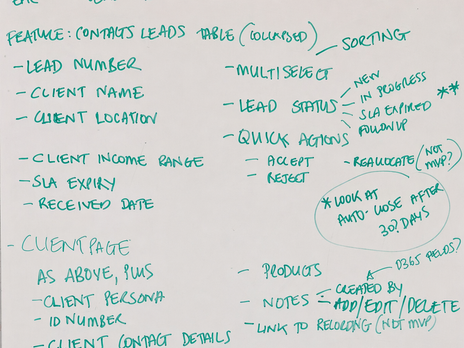 FEATURE: CONTACTS LEADS TABLE (COLLAPSED)
SORTING
- LEAD NUMBER
- CLIENT NAME
- CLIENT LOCATION
- CLIENT INCOME RANGE
- SLA EXPIRY
- RECEIVED DATE
- MULTISELECT
- LEAD STATUS
NEW
IN PROGRESS
SLA EXPIRED **
FOLLOWUP
- QUICK ACTIONS
- ACCEPT
- REJECT
- REALLOCATE (NOT MVP?)
* LOOK AT
AUTO-CLOSE AFTER
30? DAYS
- CLIENT PAGE
AS ABOVE, PLUS
- CLIENT PERSONA
- ID NUMBER
- CLIENT CONTACT DETAILS
- PRODUCTS
D365 FIELDS?
- NOTES
- CREATED BY
- ADD/EDIT/DELETE
- LINK TO RECORDING (NOT MVP)